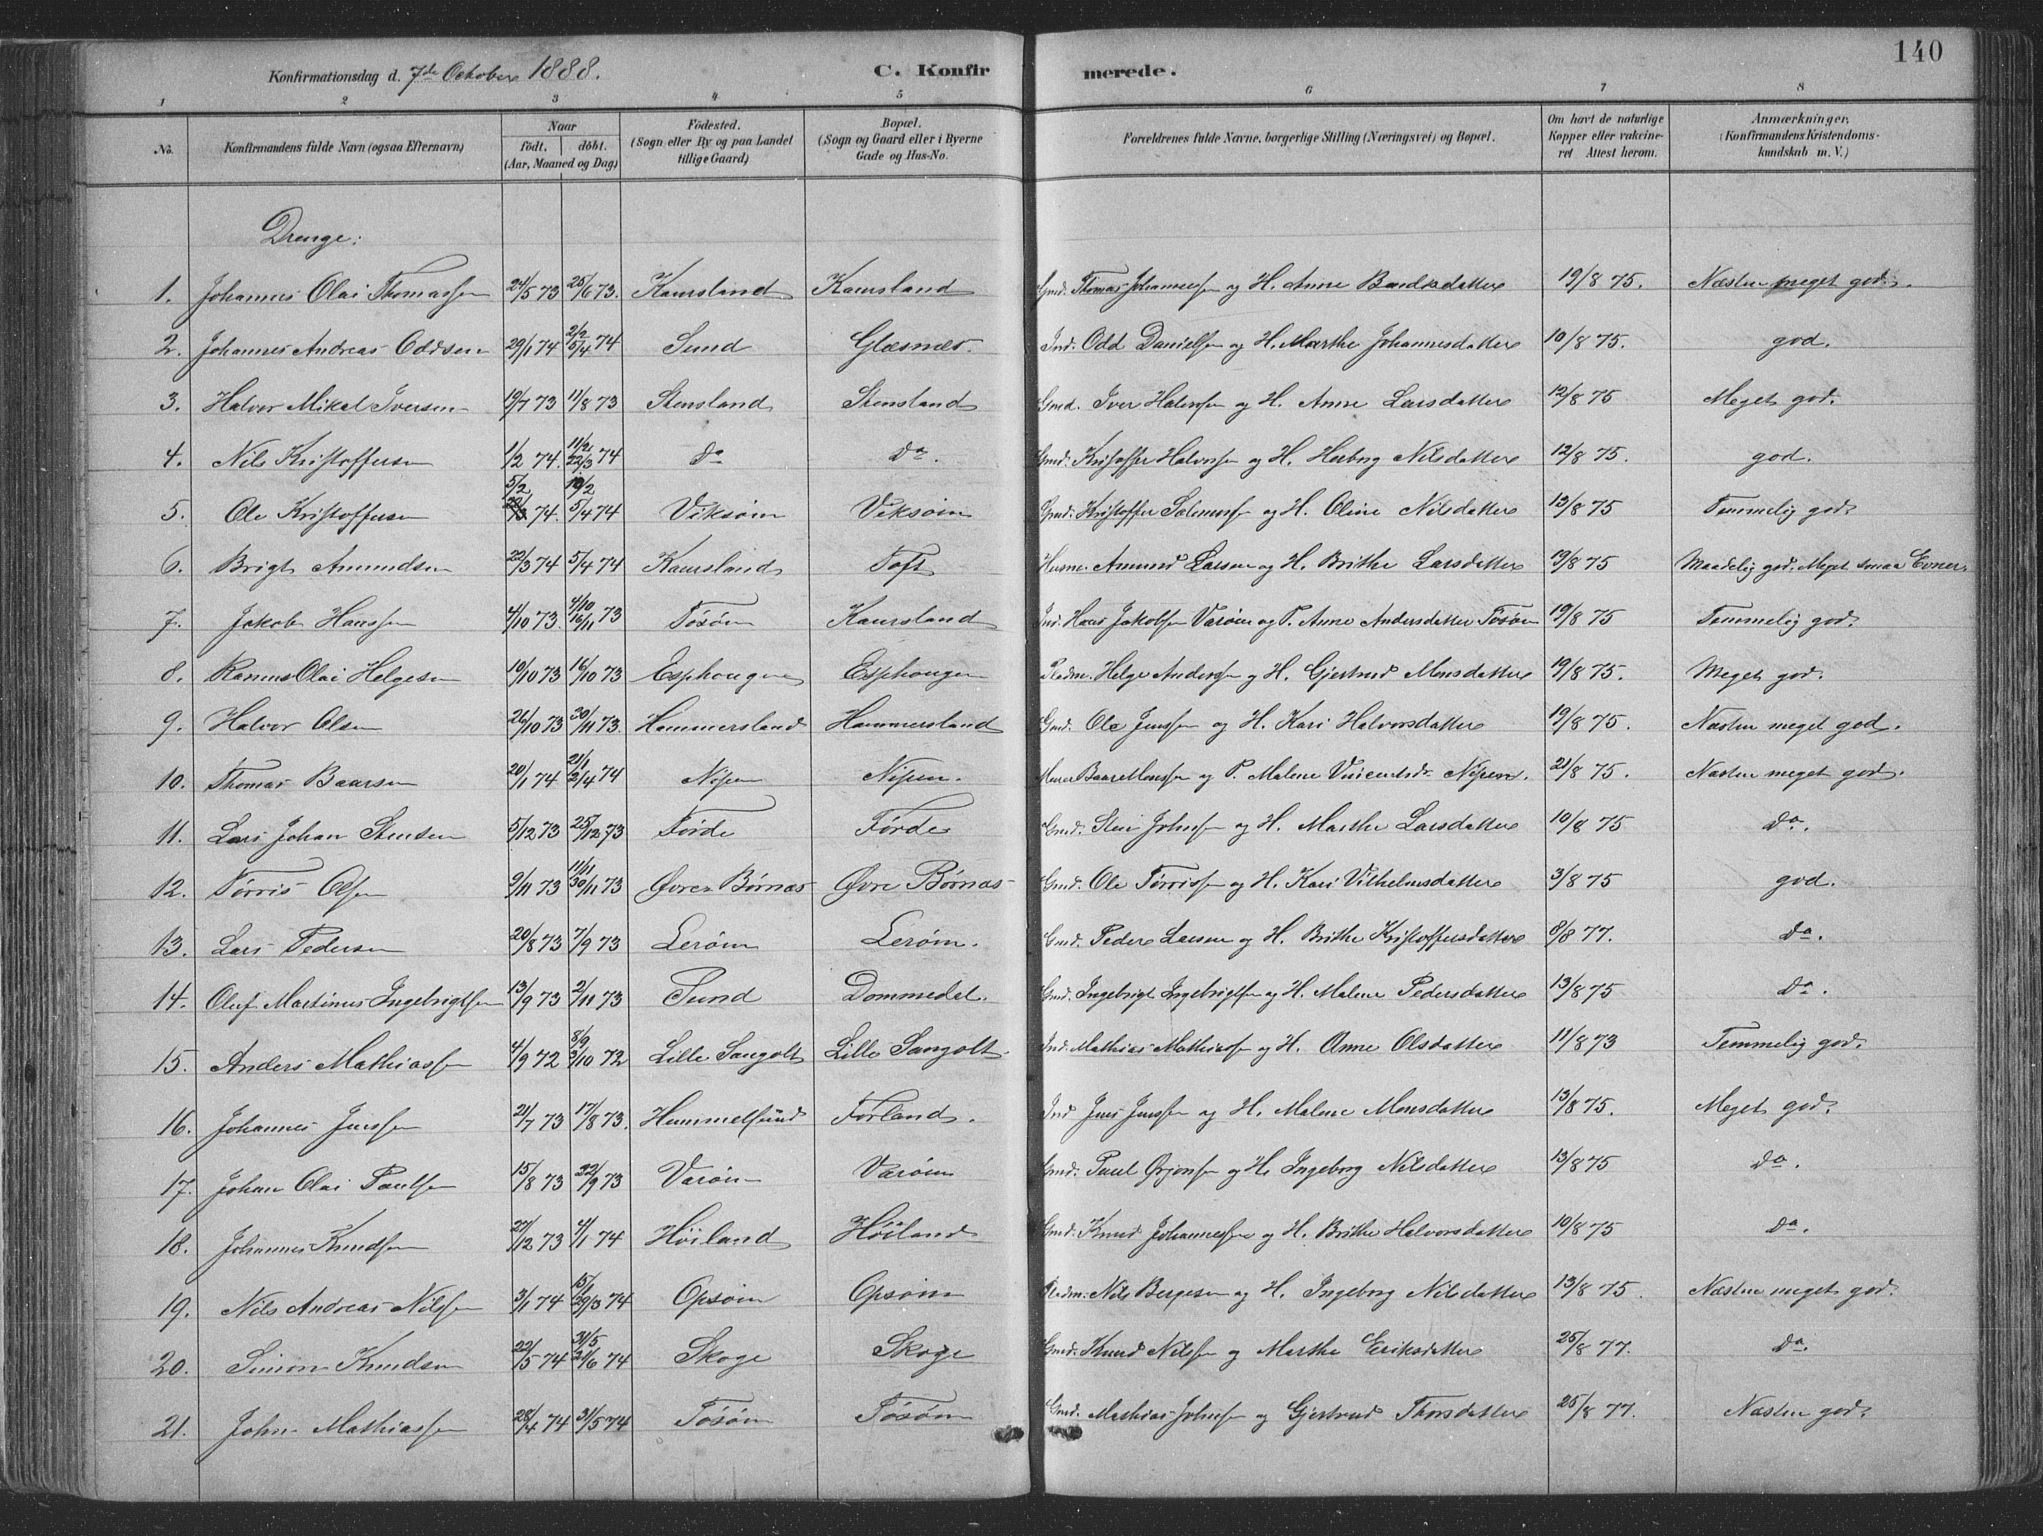 140
Konfirmationsdag d. 7de October 1888. C. Konfirmerede.
1 2 3 4 5 6 7 8
No. Konfirmandens fulde Navn (ogsaa Efternavn) Naar født. døbt. (Aar, Maaned og Dag) Födested. (Sogn eller By og paa Landet tillige Gaard) Bopæl. (Sogn og Gaard eller i Byerne Gade og Hus-No. Forældrenes fulde Navne, borgerlige Stilling (Næringsvei) og Bopæl. Om havt de naturlige Kopper eller vakcineret Attest herom. Anmærkninger, (Konfirmandens Kristendomskundskab m. V.)
Drenge:
1. Johannes Olai Thomassen 24/5 73 25/6 73. Kaursland Kaursland Gmd. Thomas Johannessen og H. Anne Baardsdatter 19/8 75. Næsten meget god.
2. Johannes Andreas Oddsen 29/1 74 2/2 5/4 74 Sund Glæsnæs. Ind. Odd Danielsen og H. Marthe Johannesdatter 10/8 75. god.
3. Halvor Mikal Iversen 19/7 73 11/8 73 Stensland Stensland Gmd. Iver Halvorsen og H. Anne Larsdatter 12/8 75 Meget god.
4. Nils Kristoffersen 1/2 74. 11/2 22/3 74 do do. Gmd. Kristoffer Halvorsen og H. Herborg Nilsdatter 12/8 75. god.
5. Ole Kristoffersen 5/2 74. 10/2 5/4 74 Viksøin Viksøin Gmd. Kristoffer Salemonsen og H. Oline Nilsdatter 13/8 75 Temmelig god.
6. Brigt Amundsen 22/3 74 5/4 74 Kaursland Toft Husm. Amund Larsen og H. Brithe Larsdatter 19/8 75 Maadelig god. Meget smaa Evner.
7. Jakob Hanssen 4/10 73. 4/10 16/11 73 Tøsøin Kaursland Ind. Hans Jakobsen Varøin og P. Anne Andersdatter Tøsøin 19/8 75 Temmelig god.
8. Rasmus Olai Helgesen 10/10 73 16/10 73 Esphougen Esphougen Pladsm. Helge Andersen og H. Gjertrud Monsdatter 19/8 75. Meget god.
9. Halvor Olsen 26/10 73 30/11 73. Hammersland Hammersland Gmd. Ole Jenssen og H. Kari Halvorsdatter 19/8 75. Næsten meget god.
10. Thomas Baarsen 20/1 74 21/1 2/4 74 Nipen Nipen. Baar Monssen og P. Malene Vincentsd. Nipen. 21/8 75. Næsten meget god.
11. Lars Johan Stensen 5/12 73 25/12 73 Førde Førde Gmd. Sten Johnsen og H. Marthe Larsdatter 10/8 75 do.
12. Tørris Olsen 9/11 73 11/11 30/11 73 Øvre Børnæs Øvre Børnæs Gmd. Ole Tørrissen og H. Kari Vilhelmsdatter 3/8 75 god.
13. Lars Pedersen 20/8 73 7/9 73 Lerøin Lerøin. Gmd. Peder Larsen og H. Brithe Kristoffersdatter 8/8 77. do.
14. Oluf Martinus Ingebrigtsen 13/9 73 2/11 73 Sund Dommedal. Gmd. Ingebrigt Ingebrigtsen og H. Malene Pedersdatter 13/8 75 do.
15. Anders Mathiassen 4/9 72 8/9 3/10 72 Lille Sangolt Lille Sangolt. Ind. Mathias Mathiassen og H. Anne Olsdatter 11/8 73 Temmelig god.
16. Johannes Jenssen 21/7 73 17/8 73. Hummelsund Førland. Ind. Jens Jenssen og H. Malene Monsdatter 13/8 75. Meget god.
17. Johan Olai Paulsen 15/8 73 22/9 73 Varøin Varøin Gmd. Paul Ørjansen og H. Ingeborg Nilsdatter 13/8 75 do.
18. Johannes Knudsen 27/12 73 4/1 74 Høiland Høiland Gmd. Knud Johannessen og H. Brithe Halvorsdatter 10/8 75 do.
19. Nils Andreas Nilsen 3/1 74 15/1 29/3 74 Opsøin Opsøin Pladsm. Nils Bergesen og H. Ingeborg Nilsdatter 13/8 75. Næsten meget god.
20. Simon Knudsen 22/5 74 31/5 21/6 74 Skoge Skoge Gmd. Knud Nilsen og Marthe Eriksdatter 25/8 77. do.
21. John Mathiassen 28/4 74 31/5 74 Tøsøin Tøsøin Gmd. Mathias Johnsen og Gjertrud Thorsdatter 25/8 77. Næsten god.